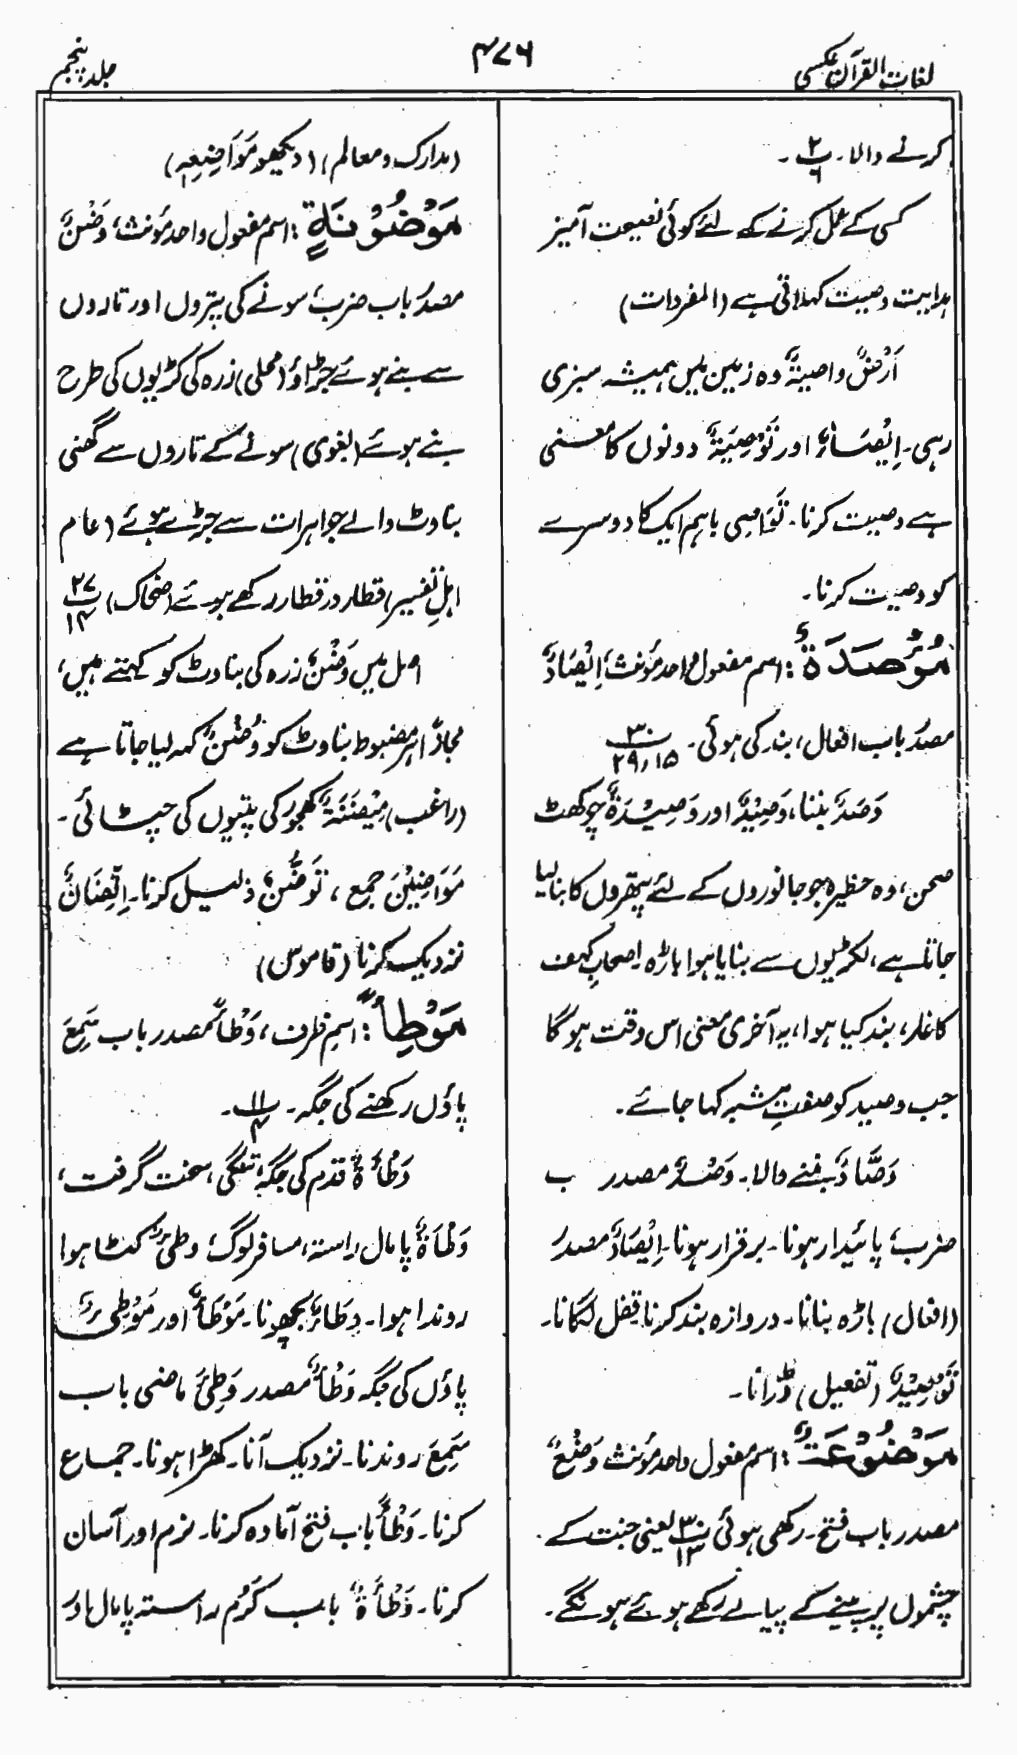 لغات القرآن عکسی
۴۷۶
جلد پنجم
کرنے والا۔ پ ۲ / ۶ ۔
کسی کے عمل کرنے کے لئے کوئی نصیحت آمیز
ہدایت وصیت کہلاتی ہے (المفردات)
اَرْضٌ واصیۃٌ وہ زمین جس میں ہمیشہ سبزی
رہی۔ اِیْصَاءٌ اور تَوْصِیَۃٌ دونوں کا معنی
ہے وصیت کرنا۔ تَوَاصِی باہم ایک کا دوسرے
کو وصیت کرنا۔
مُؤْصَدَۃٌ: اسم مفعول واحد مؤنث، اِیْصَادٌ
مصدر باب افعال، بند کی ہوئی۔ پ ۳۰ / ۲۹،۱۵
وَصَدَ بننا، وَصِیْدٌ اور وَصِیْدَۃٌ چوکھٹ
صحن، وہ حظیرہ جو جانوروں کے لئے پتھروں کا بنالیا
جاتا ہے، لکڑیوں سے بنایا ہوا باڑہ اصحاب کہف
کا غار، بند کیا ہوا، یہ آخری معنی اس وقت ہوگا
جب وصید کو صفتِ مشبہ کہا جائے۔
وَصَّادٌ بننے والا۔ وَصْدٌ مصدر ب
ضرب، پائیدار ہونا۔ برقرار ہونا۔ اِیْصَادٌ مصدر
(افعال) باڑہ بنانا۔ دروازہ بند کرنا قفل لگانا۔
تَوْصِیْدٌ (تفعیل) ڈرانا۔
مَوْضُوْعَۃٌ: اسم مفعول واحد مؤنث وَضْعٌ
مصدر باب فتح۔ رکھی ہوئی پ ۳۰ / ۱۳ یعنی جنت کے
چشموں پر پینے کے پیالے رکھے ہوئے ہونگے۔
(مدارک و معالم) (دیکھو مَوَاضِیْعِہٖ)
مَوْضُوْنَۃٍ: اسم مفعول واحد مؤنث، وَضْنٌ
مصدر باب ضرب، سونے کی پتروں اور تاروں
سے بنے ہوئے جڑاؤ (محلی) زرہ کی کڑیوں کی طرح
بنے ہوئے (بغوی) سونے کے تاروں سے گھنی
بناوٹ والے جواہرات سے جڑے ہوئے (عام
اہلِ تفسیر) قطار در قطار رکھے ہوئے (ضحاک) پ ۲۷ / ۱۴
اصل میں وَضْنٌ زرہ کی بناوٹ کو کہتے ہیں،
مجازًا ہر مضبوط بناوٹ کو وَضْنٌ کہہ لیا جاتا ہے
(راغب) مِیْضَنَۃٌ کھجور کی پتیوں کی چٹائی۔
مَوَاضِیْنَ جمع، تَوَضُّنٌ ذلیل کرنا۔ اِتِّضَانٌ
نزدیک کرنا (قاموس)
مَوْطِأً: اسم ظرف، وَطْأٌ مصدر باب سَمِعَ
پاؤں رکھنے کی جگہ۔ پ ۱۱ / ۴ ۔
وَطْأَۃٌ قدم کی جگہ، تنگی، سخت گرفت،
وَطْأَۃٌ پامال راستہ، مسافر لوگ، وطیءٌ کٹا ہوا
روندا ہوا۔ وِطَاءٌ بچھونا۔ مَوْطَأٌ اور مَوْطِیءٌ
پاؤں کی جگہ وَطْأٌ مصدر وَطِئَ ماضی باب
سَمِعَ روندنا۔ نزدیک آنا۔ کھڑا ہونا۔ جماع
کرنا۔ وَطْأٌ باب فتح آمادہ کرنا۔ نرم اور آسان
کرنا۔ وَطْأَۃٌ باب کَرُم راستہ پامال اور